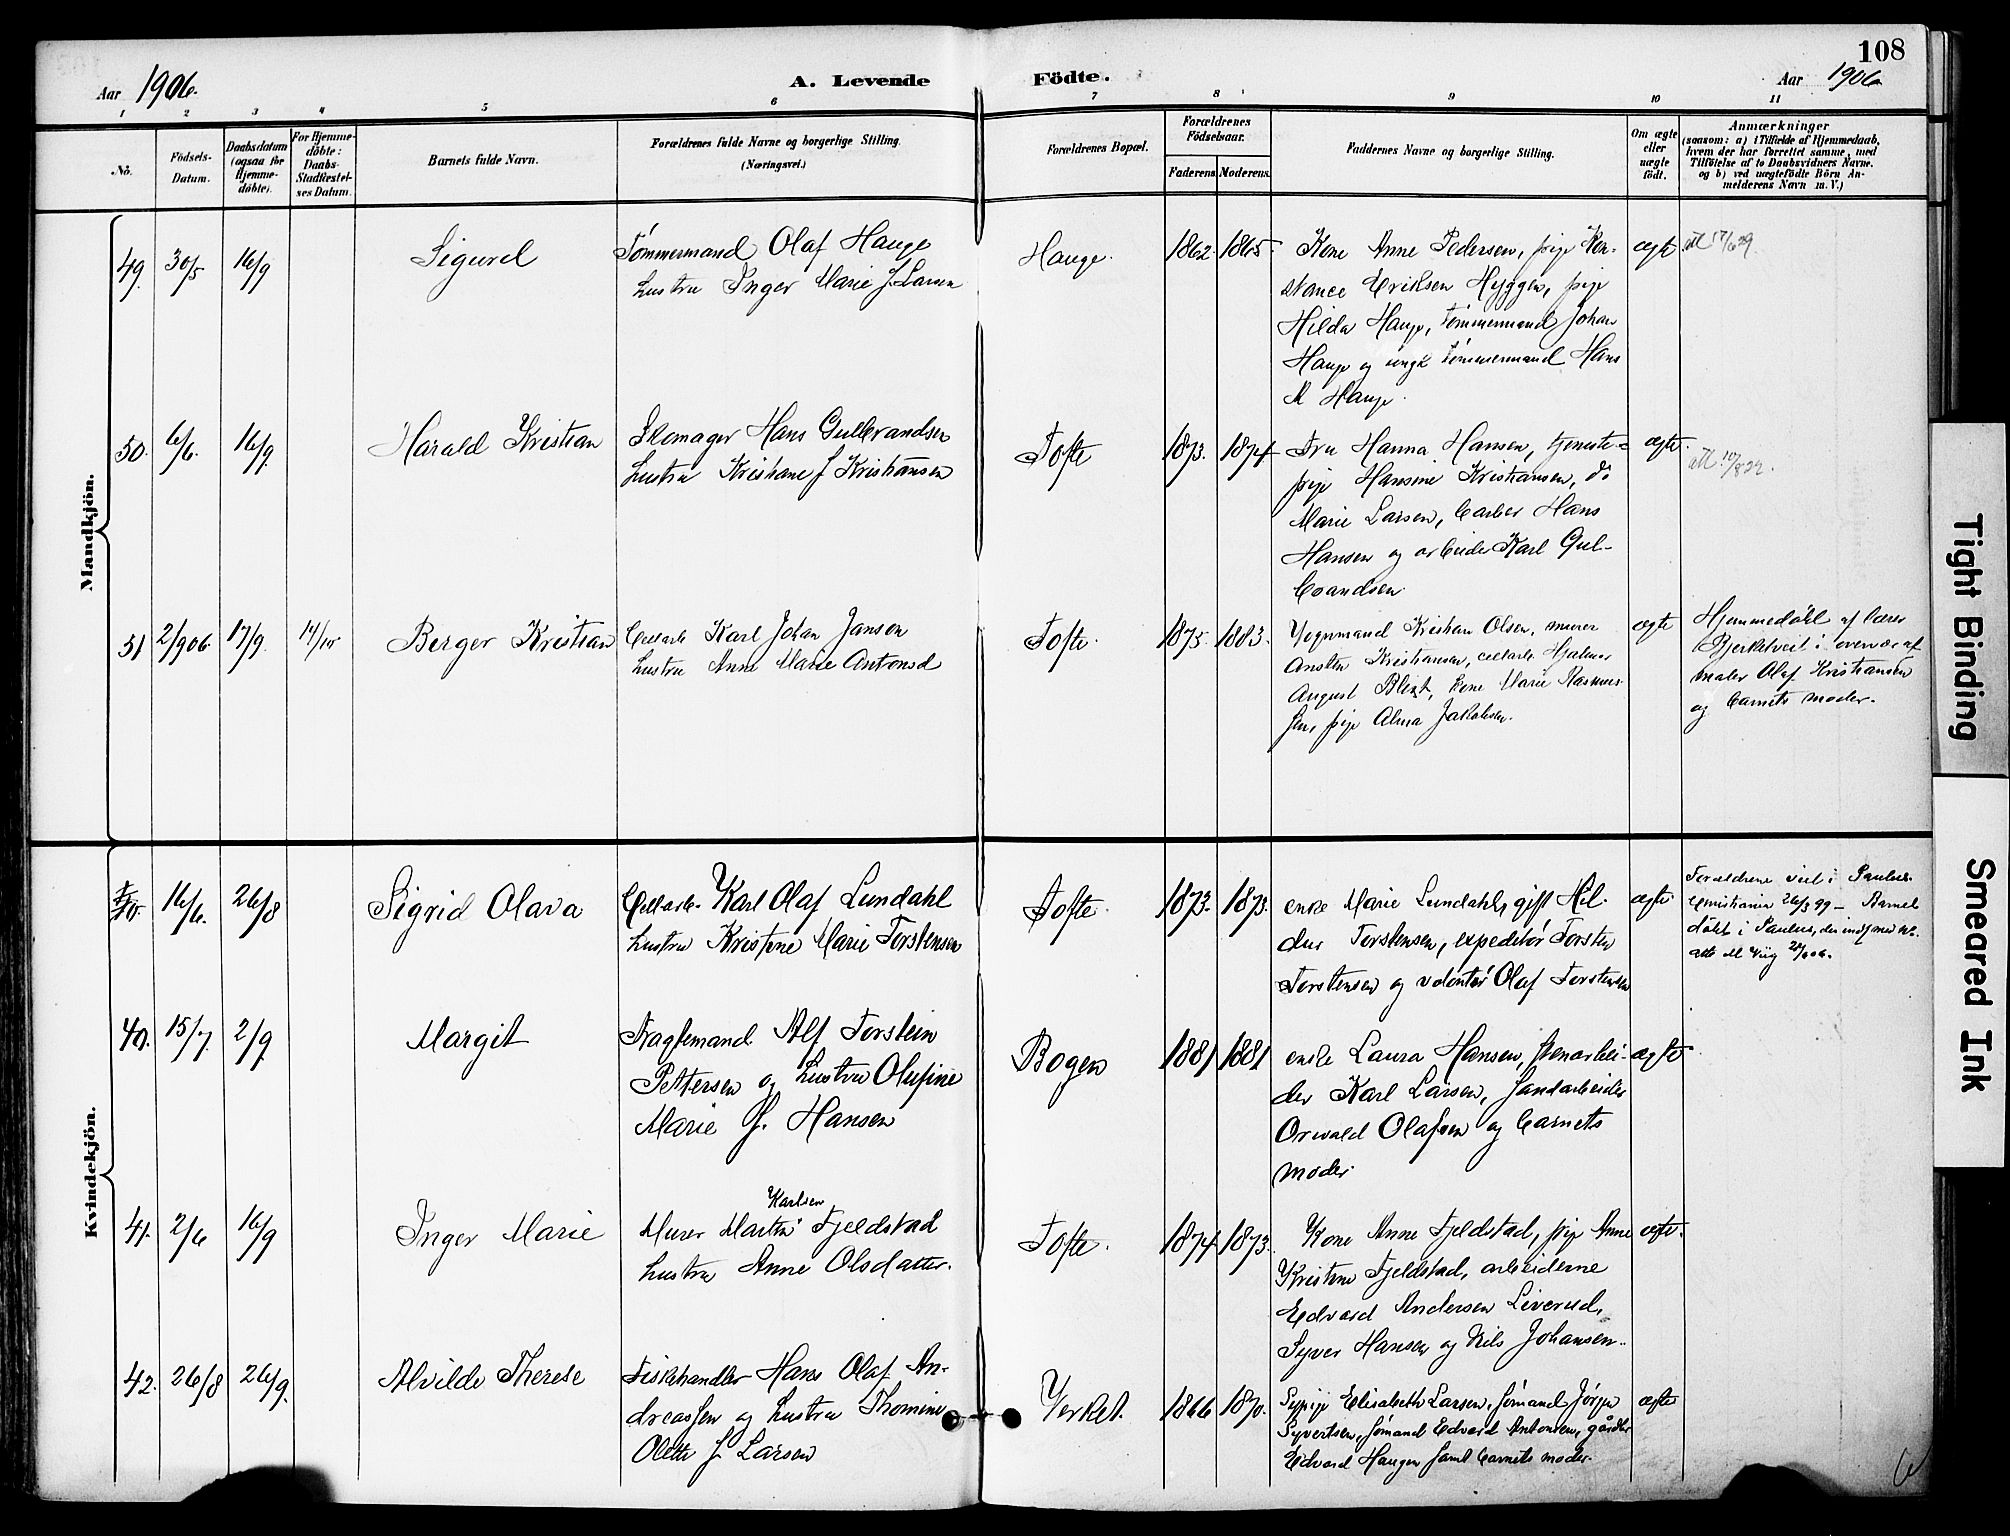 108
Aar 1906.
A. Levende Födte.
Aar 1906
1 2 3 4 5 6 7 8 9 10 11
No.
Födsels-Datum.
Daabsdatum (ogsaa för Hjemme-döbte).
For Hjemme-döbte: Daabs-Stadfæstel-ses Datum.
Barnets fulde Navn.
Forældrenes fulde Navne og borgerlige Stilling. (Næringsvei.)
Forældrenes Bopæl.
Forældrenes Födselsaar.
Faderens. Moderens.
Faddernes Navne og borgerlige Stilling.
Om ægte eller uægte født.
Anmærkninger
(saasom: a) i Tilfælde af Hjemmedaab,
hvem der har forrettet samme, med
Tilföielse af to Daabsvidners Navne.
og b) ved uægtefödte Börn An-
melderens Navn m. V.)
Mandkjön.
49. 30/5 16/9 Sigurd
Tømmermand Olaf Hauge
hustru Inger Marie f. Larsen
Hauge. 1862. 1865.
Kone Anne Pedersen, pige Kon-
stance Eriksen Hyggen, pige
Hilda Hauge, tømmermand Johan
Hauge og ungk tømmermand Hans
M Hauge.
ægte
50. 6/6. 16/9. Harald Kristian
Skomager Hans Gulbrandsen
hustru Kristiane f Kristiansen
Tofte 1873. 1874
Fru Hanna Hansen, tjeneste-
pige Hansine Kristiansen, do
Marie Larsen, barber Hans
Hansen og arbeider Karl Gul-
brandsen.
ægte.
51 2/906. 17/9. 14/10 Berger Kristian
Cellarb Karl Johan Janson
hustru Anne Marie Antonsd
Tofte. 1875. 1883.
Vognmand Kristian Olsen, murer
Ansten Kristiansen, cellarb Hjalmar
August Blixt, kone Marie Rasmus-
sen, pige Alma Jakobsen.
ægte
Hjemmedøbt af lærer
Bjerketveit i overvær af
maler Olaf Kristiansen
og barnets moder.
Kvindekjön.
16/6. 26/8 Sigrid Olava
Cellarb. Karl Olaf Lundahl
hustru Kristine Marie Torstensen
Tofte. 1873. 1873.
enke Marie Lundahl, gift Hil-
dur Torstensen, expeditør Torsten
Torstensen og volontør Olaf Torstensen
ægte.
Forældrene viet i Paulus
Christiania 26/3 99 - Barnet
døbt i Paulus,
40. 15/7. 2/9 Margit
Fragtemand Alf Torstein
Pettersen og hustru Olufine
Marie f. Hansen
Bogen 1881 1881
enke Laura Hansen, stenarbei-
der Karl Larsen, sandarbeider
Orvald Olafsen og barnets
moder.
ægte
41. 2/6 16/9 Inger Marie
Karlsen
Murer Martin Fjeldstad
hustru Anne Olsdatter.
Tofte. 1874. 1873.
Kone Anne Fjeldstad, pige Anne
Kristine Fjeldstad, arbeiderne
Edvard Andersen Liverud,
Syver Hansen og Nils Johansen.
ægte.
42. 26/8 26/9. Alvilde Therese
Fiskhandler Hans Olaf An-
dreassen og hustru Thomine
Olette f. Larsen
Verket. 1866 1870.
Sypige Elisabeth Larsen, sømand Jørgen
Syvertsen, sømand Edvard Antonsen, gårdbr
Edvard Haugen samt barnets moder.
ægte
Tight Binding
Smeared Ink